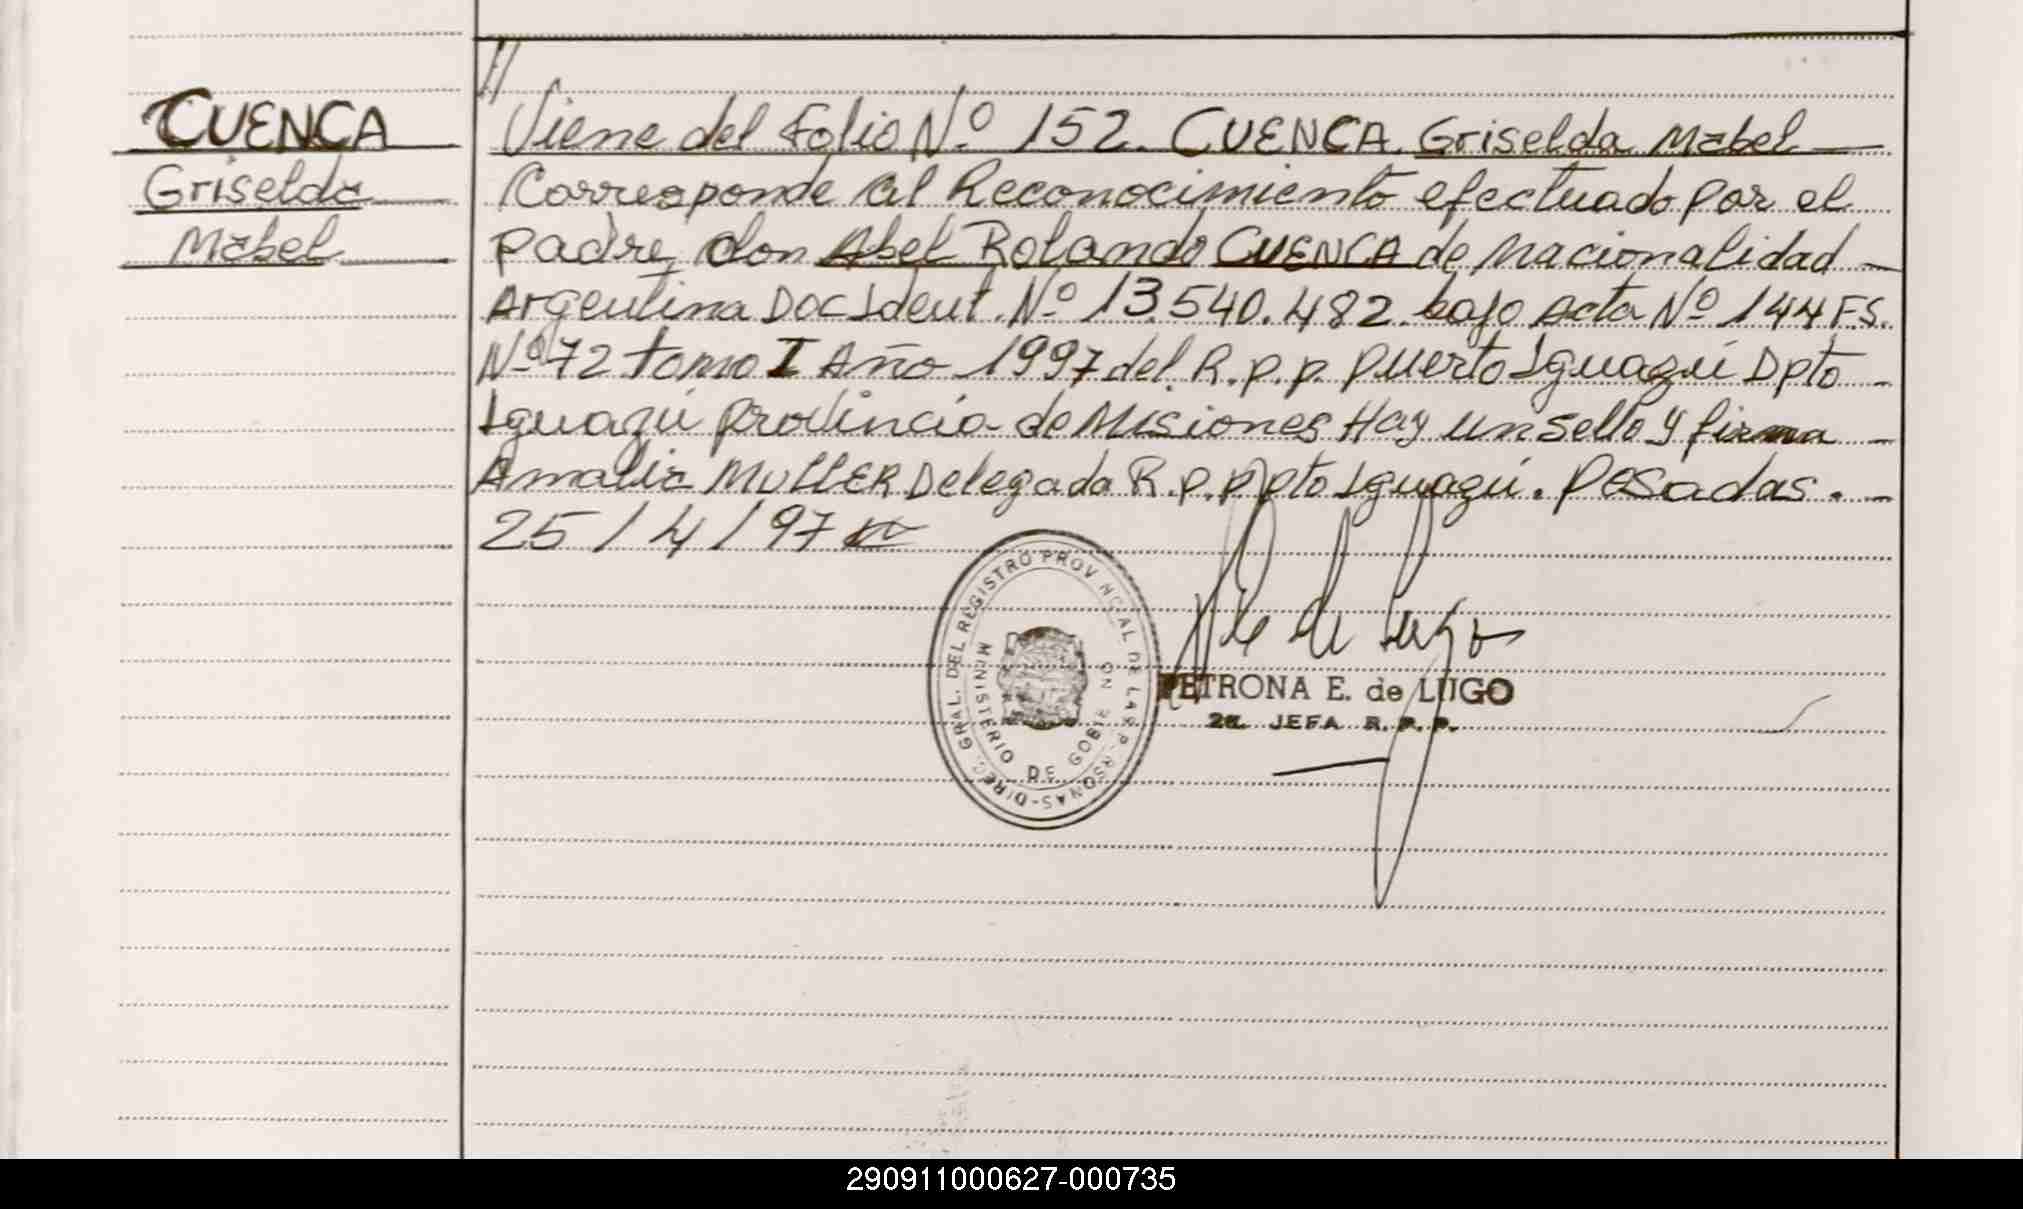 CUENCA
Griselda
Mabel
//
Viene del Folio Nº 152. CUENCA. Griselda Mabel
Corresponde al Reconocimiento efectuado por el
padre don Abel Rolando CUENCA de Nacionalidad
Argentina Doc Ident. Nº 13.540.482. bajo Acta Nº 144 F.S.
Nº 72 tomo I Año 1997 del R.p.p. Puerto Iguazú Dpto
Iguazú provincia de Misiones Hay un sello y firma
Amalia MULLER Delegada R.p.p Dpto Iguazú. Posadas.
25/4/97
DIREC. GRAL. DEL REGISTRO PROVINCIAL DE LAS PERSONAS-
MINISTERIO DE GOBIERNO
P. E. de Lugo
PETRONA E. de LUGO
2a. JEFA R.P.P.
290911000627-000735